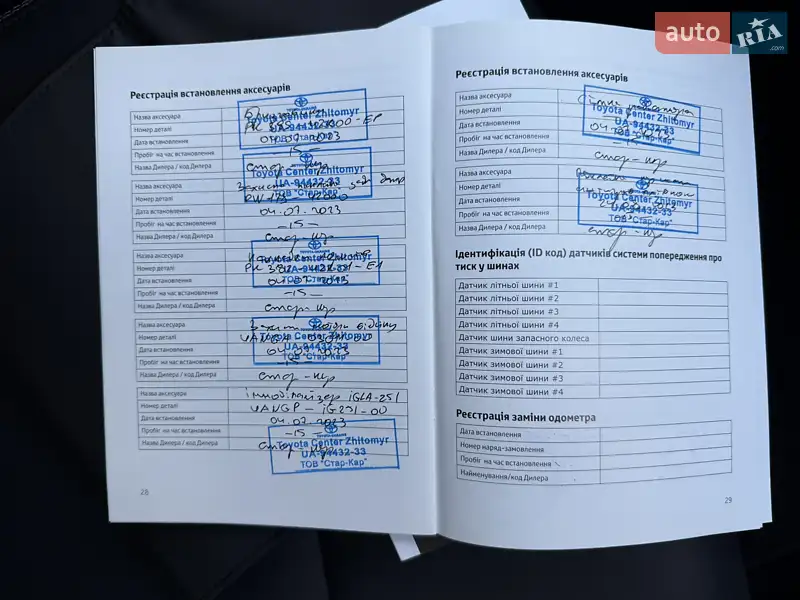 auto RIA .com
Реєстрація встановлення аксесуарів
Назва аксесуара
Номер деталі
Дата встановлення 04.07.2023
Пробіг на час встановлення -15-
Назва Дилера / код Дилера Стар-кар
Toyota Center Zhitomyr
UA-94432-33
ТОВ "Стар-Кар"
Назва аксесуара Захист
Номер деталі
Дата встановлення 04.07.2023
Пробіг на час встановлення -15-
Назва Дилера / код Дилера Стар-кар
Toyota Center Zhitomyr
UA-94432-33
ТОВ "Стар-Кар"
Назва аксесуара
Номер деталі
Дата встановлення 04.07.2023
Пробіг на час встановлення -15-
Назва Дилера / код Дилера Стар-кар
Toyota Center Zhitomyr
UA-94432-33
ТОВ "Стар-Кар"
Назва аксесуара Захист
Номер деталі
Дата встановлення 04.07.2023
Пробіг на час встановлення
Назва Дилера / код Дилера Стар-кар
Toyota Center Zhitomyr
UA-94432-33
ТОВ "Стар-Кар"
Назва аксесуара імобілайзер IGLA-251
Номер деталі UANGP-IG251-00
Дата встановлення 04.07.2023
Пробіг на час встановлення -15-
Назва Дилера / код Дилера Стар-кар
Toyota Center Zhitomyr
UA-94432-33
ТОВ "Стар-Кар"
28
Реєстрація встановлення аксесуарів
Назва аксесуара
Номер деталі
Дата встановлення
Пробіг на час встановлення -15-
Назва Дилера / код Дилера Стар-кар
Toyota Center Zhitomyr
UA-94432-33
ТОВ "Стар-Кар"
Назва аксесуара
Номер деталі
Дата встановлення
Пробіг на час встановлення
Назва Дилера / код Дилера Стар-кар
Toyota Center Zhitomyr
UA-94432-33
ТОВ "Стар-Кар"
Ідентифікація (ID код) датчиків системи попередження про
тиск у шинах
Датчик літньої шини #1
Датчик літньої шини #2
Датчик літньої шини #3
Датчик літньої шини #4
Датчик шини запасного колеса
Датчик зимової шини #1
Датчик зимової шини #2
Датчик зимової шини #3
Датчик зимової шини #4
Реєстрація заміни одометра
Дата встановлення
Номер наряд-замовлення
Пробіг на час встановлення
Найменування/код Дилера
29